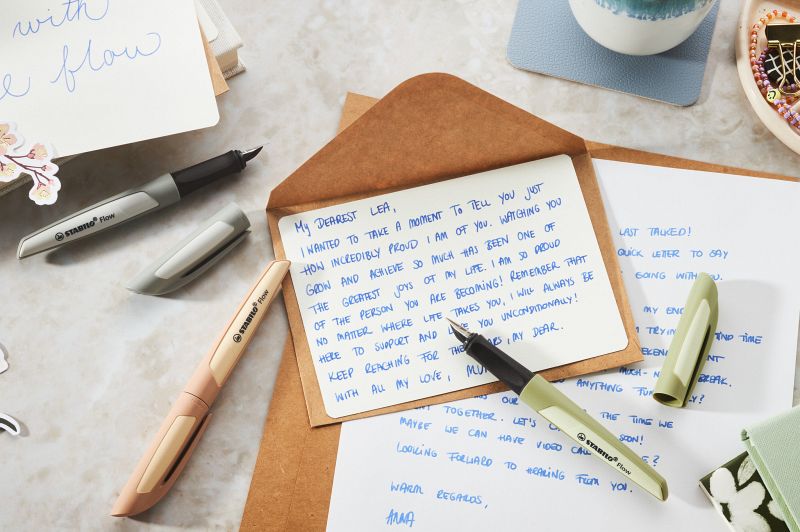 with
flow
STABILO® Flow
STABILO® Flow
MY DEAREST LEA,
I WANTED TO TAKE A MOMENT TO TELL YOU JUST
HOW INCREDIBLY PROUD I AM OF YOU. WATCHING YOU
GROW AND ACHIEVE SO MUCH HAS BEEN ONE OF
THE GREATEST JOYS OF MY LIFE. I AM SO PROUD
OF THE PERSON YOU ARE BECOMING! REMEMBER THAT
NO MATTER WHERE LIFE TAKES YOU, I WILL ALWAYS BE
HERE TO SUPPORT AND YOU UNCONDITIONALLY!
KEEP REACHING FOR THE , MY DEAR.
WITH ALL MY LOVE,
STABILO® Flow
LAST TALKED!
QUICK LETTER TO SAY
GOING WITH YOU.
MY
TRYING TIME
BREAK.
ANYTHING
THE TIME WE
TOGETHER. LET'S SOON!
MAYBE WE CAN HAVE VIDEO
LOOKING FORWARD TO HEARING FROM YOU.
WARM REGARDS,
ANNA